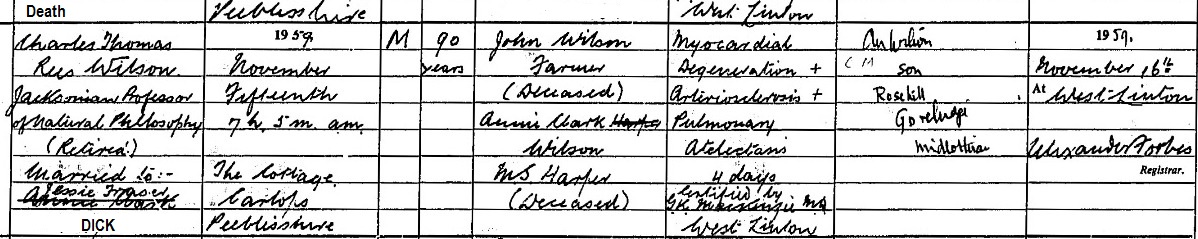 Death
Peeblisshire
West Linton
Charles Thomas
Rees Wilson.
Jacksonian Professor
of Natural Philosophy
(Retired)
Married to:-
Jessie Fraser
Annie Clark
DICK
1959.
November
Fifteenth
7h. 5m. am.
The Cottage
Carlops
Peeblisshire
M
90
years
John Wilson
Farmer
(Deceased)
Annie Clark Harper
Wilson
MS Harper
(Deceased)
Myocardial
Degeneration +
Arteriosclerosis +
Pulmonary
Atelectasis
4 days
Certified by
G.K. MacKenzie MB
West Linton
Wilson
son
Rosehill
Gorebridge
Midlothian
1959.
November 16th
At West-Linton
Alexander Forbes
Registrar.